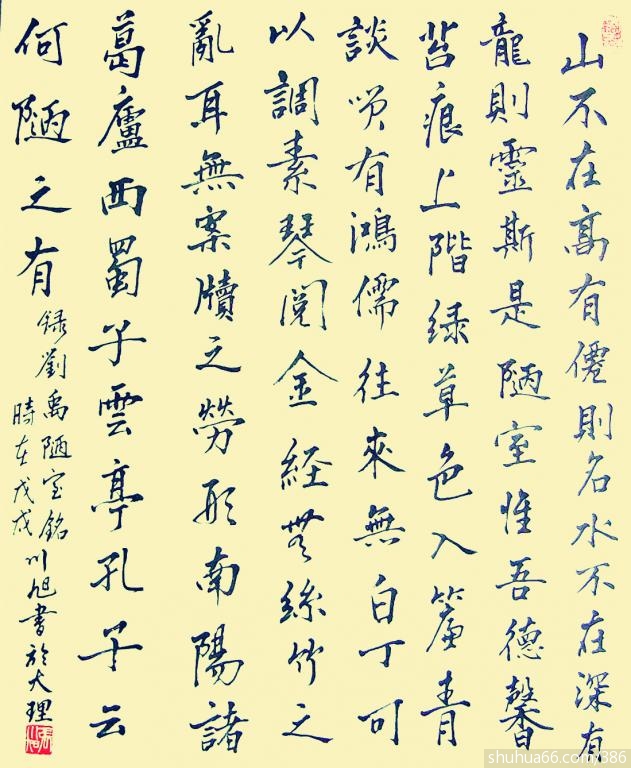 山不在髙有僊則名水不在深有
龍則靈斯是陋室惟吾德馨
苔痕上階緑草色入簾青
談咲有鴻儒往來無白丁可
以調素琴閲金経無絲竹之
亂耳無案牘之勞形南陽諸
葛廬西蜀子雲亭孔子云
何陋之有
録劉禹陋室銘川旭書於大理
時在戊戌
shuhua66.com/386